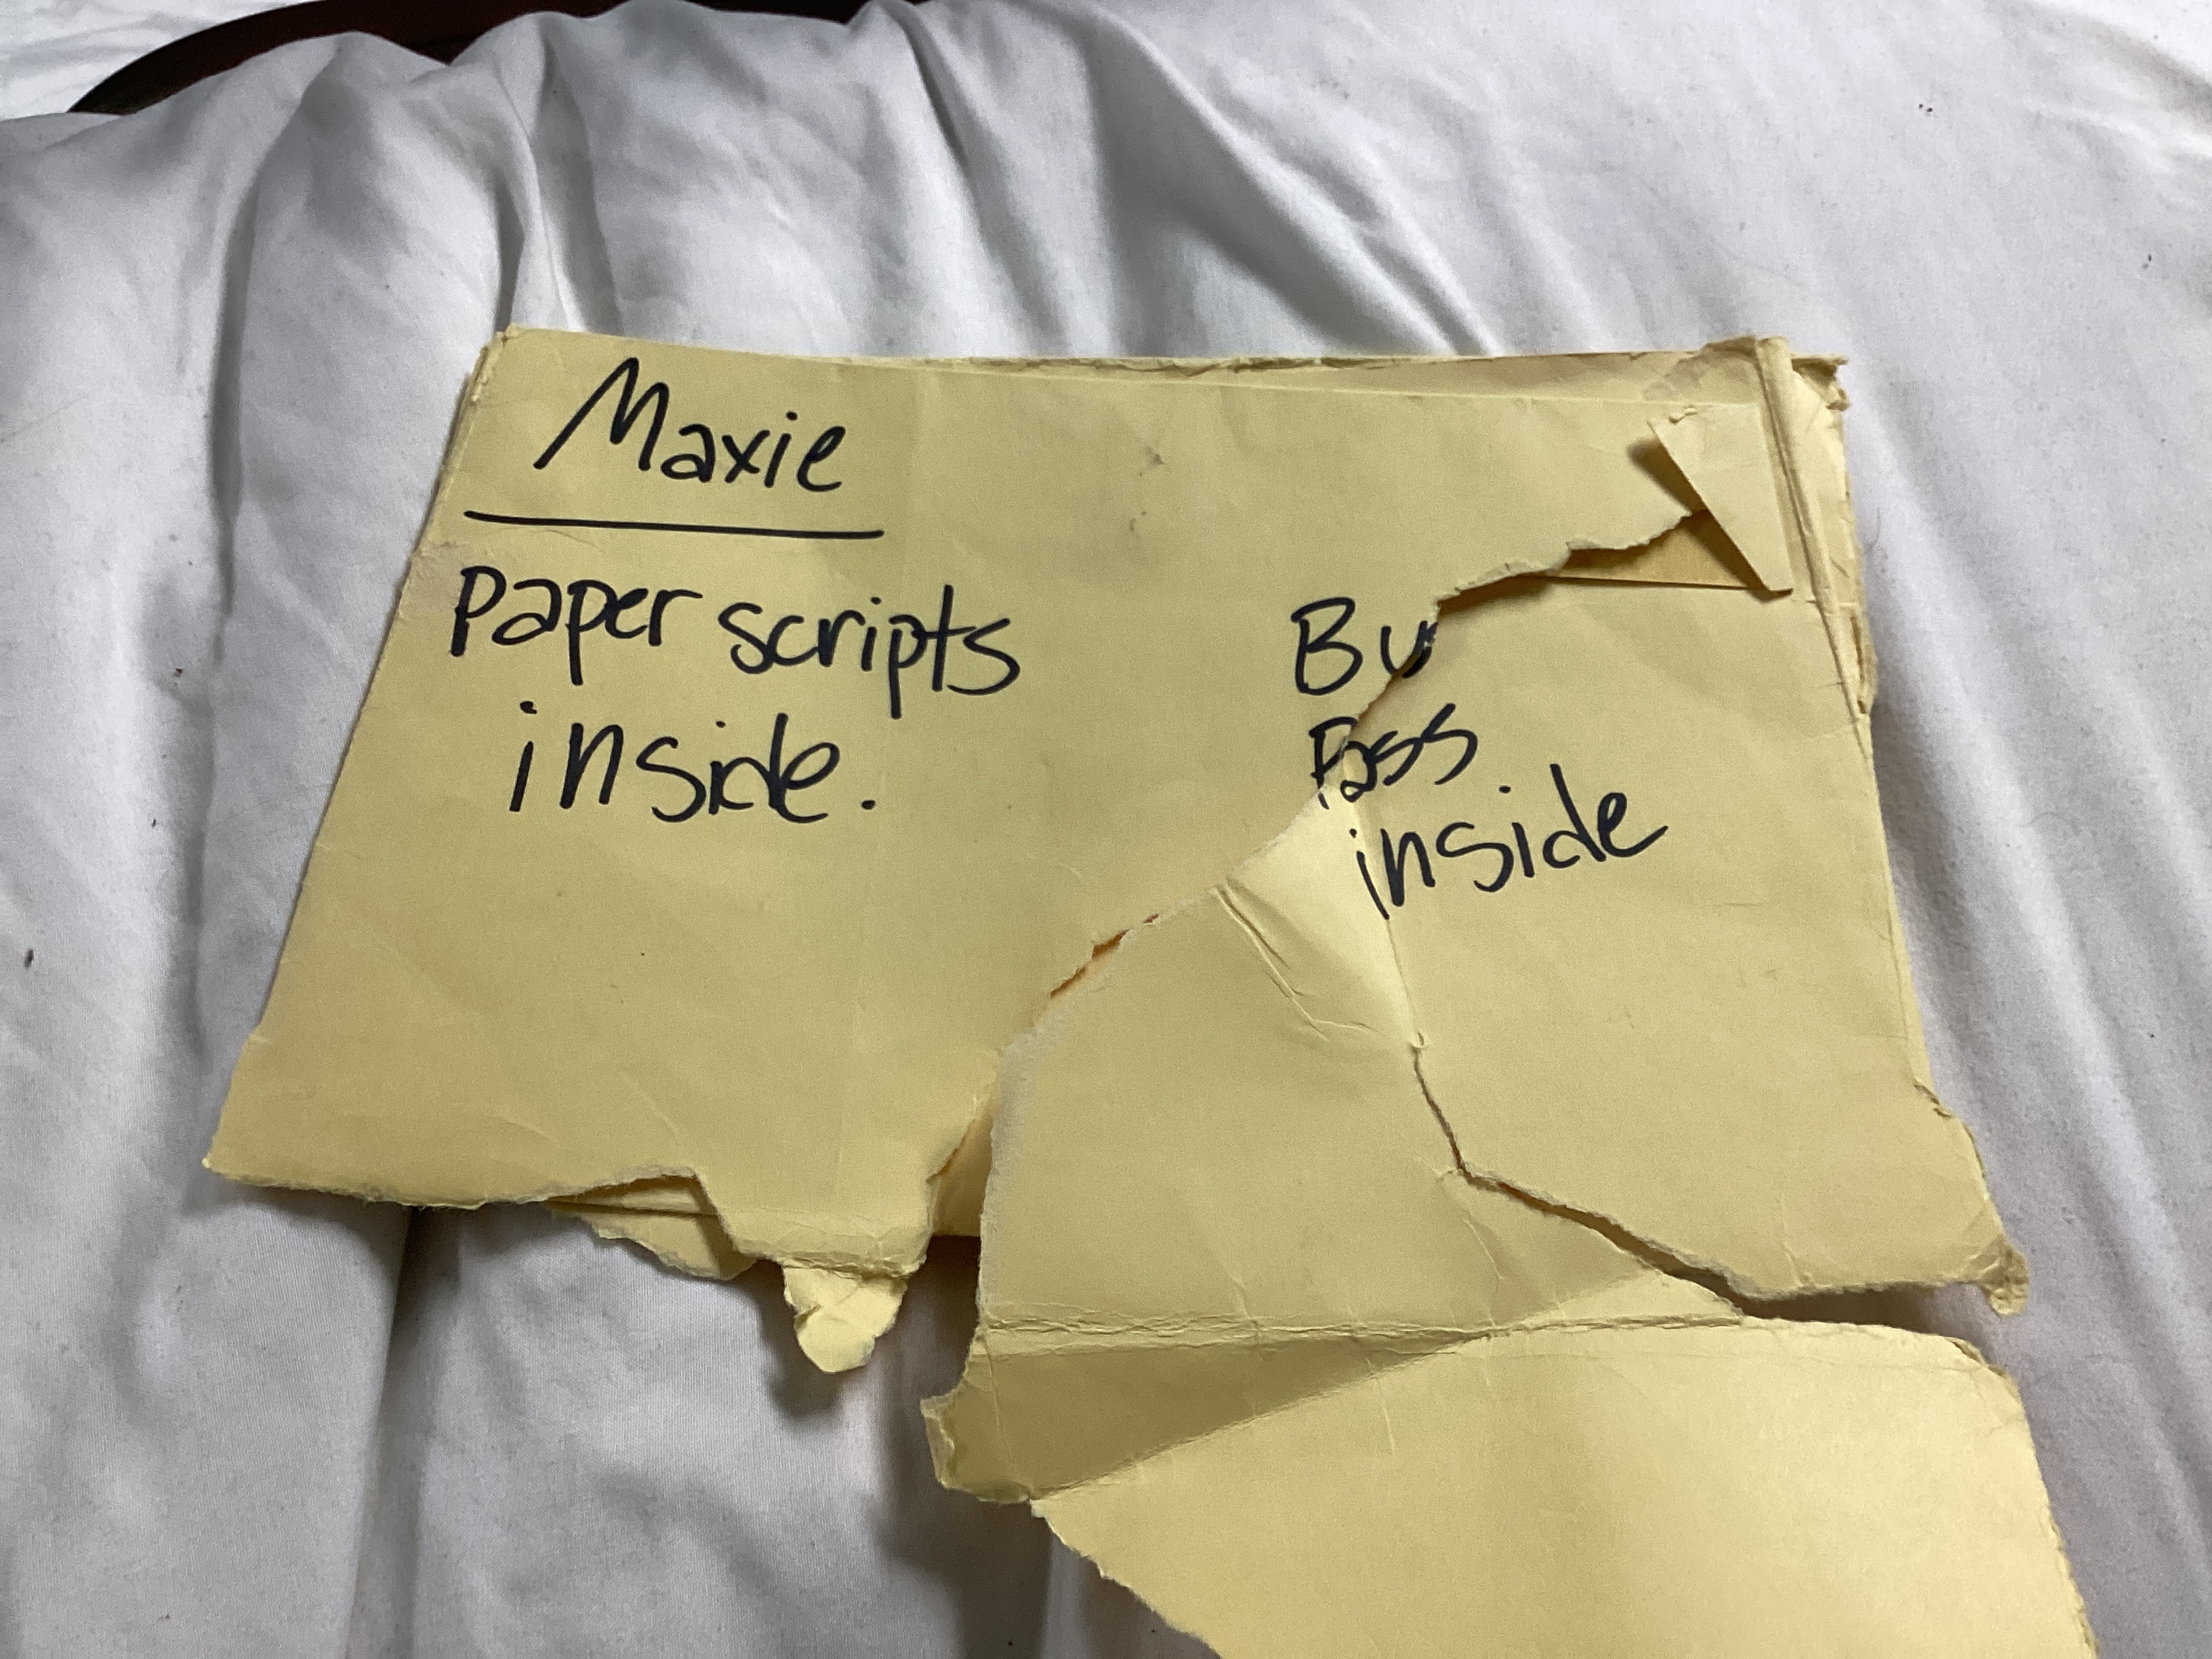 Maxie
Paper scripts
inside.
Bus
Pass
inside